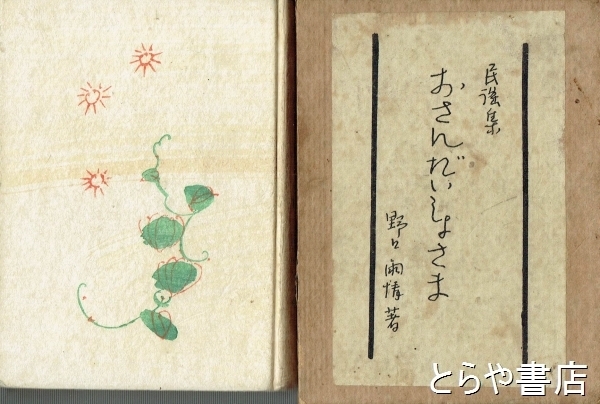 民謡集
おさんだいしよさま
野口雨情著
とらや書店